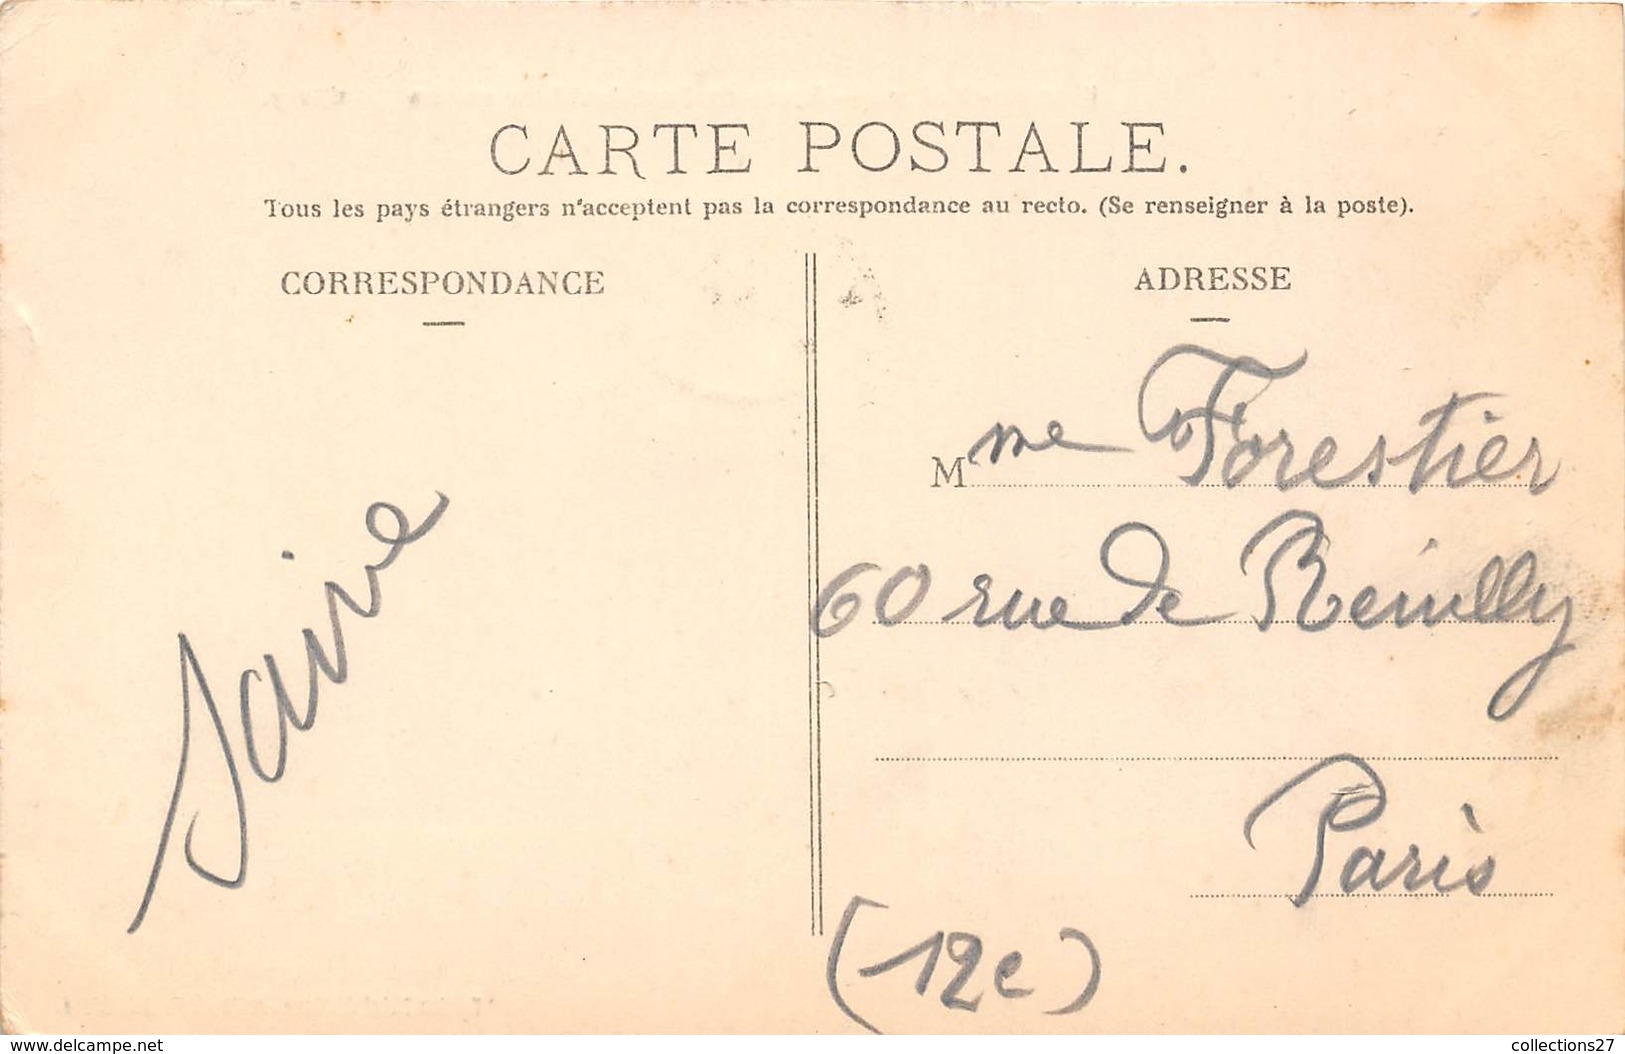 CARTE POSTALE.
Tous les pays étrangers n'acceptent pas la correspondance au recto. (Se renseigner à la poste).
CORRESPONDANCE
ADRESSE
Mme Forestier
60 rue de Reuilly
Paris
(12e)
www.delcampe.net
collections27